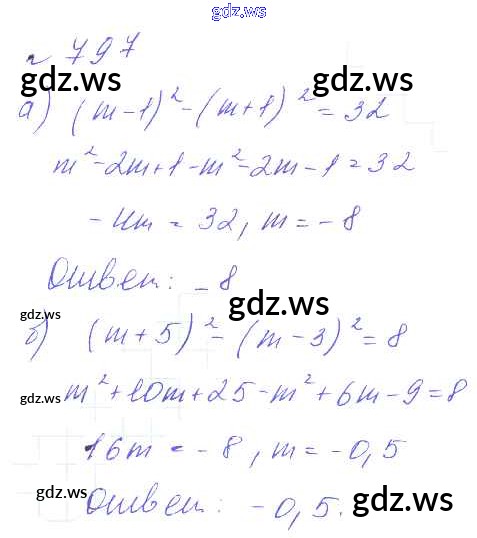 gdz.ws
№ 797
gdz.ws gdz.ws
а) (m-1)² - (m+1)² = 32
m² - 2m + 1 - m² - 2m - 1 = 32
- 4m = 32, m = - 8
Ответ: - 8
gdz.ws gdz.ws
б) (m + 5)² - (m - 3)² = 8
gdz.ws m² + 10m + 25 - m² + 6m - 9 = 8
16m = - 8, m = - 0,5
gdz.ws gdz.ws
Ответ: - 0,5.